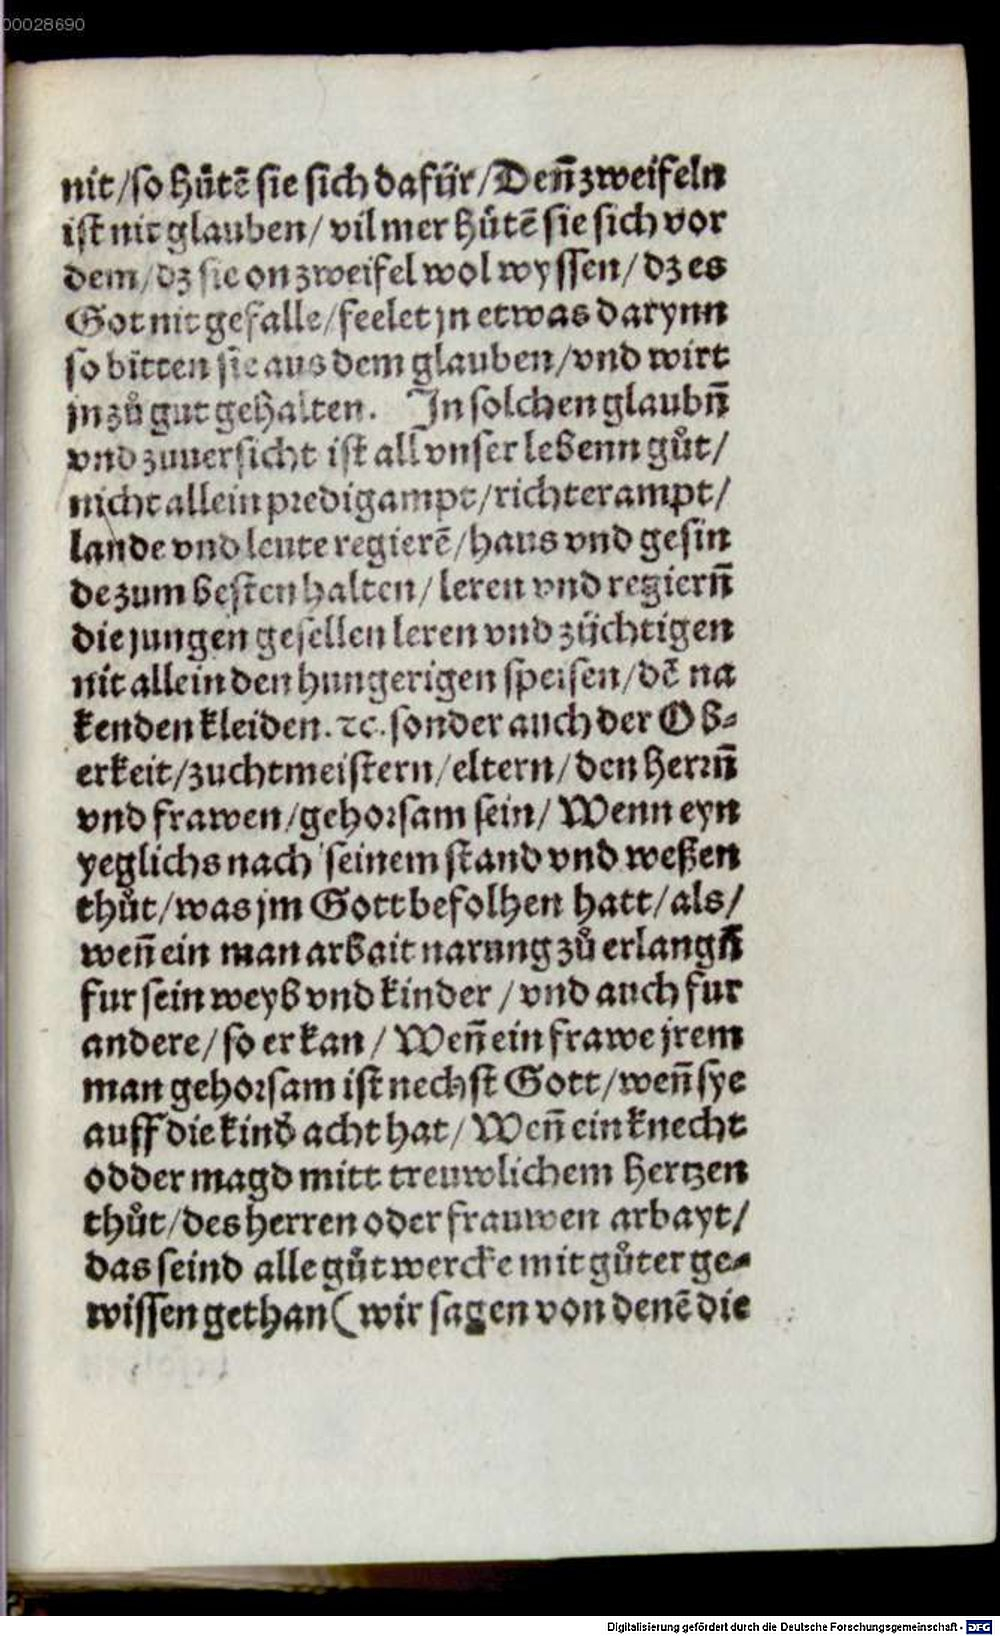 00028690
nit/so hůtē sie sich dafür/Deñ zweifeln
ist nit glauben/ vil mer hůtē sie sich vor
dem/dz sie on zweifel wol wyssen/ dz es
Got nit gefalle/feelet jn etwas darynn
so bitten sie aus dem glauben/vnd wirt
jn zů gut gehalten. In solchen glaubn̄
vnd zuuersicht ist all vnser lebenn gůt/
nicht allein predigampt/richterampt/
lande vnd leute regierē/haus vnd gesin
de zum besten halten/ leren vnd regiern̄
die jungen gesellen leren vnd züchtigen
nit allein den hungerigen speisen/dē na
kenden kleiden. ⁊c. sonder auch der Ob⸗
erkeit/zuchtmeistern/eltern/den herrn̄
vnd frawen/gehorsam sein/ Wenn eyn
yeglichs nach seinem stand vnd weßen
thůt/was jm Gott befolhen hatt/als/
weñ ein man arbait narung zů erlangn̄
fur sein weyb vnd kinder / vnd auch fur
andere/ so er kan / Weñ ein frawe jrem
man gehorsam ist nechst Gott/weñ sye
auff die kind acht hat/ Weñ ein knecht
odder magd mitt treuwlichem hertzen
thůt/des herren oder frauwen arbayt/
das seind alle gůt wercke mit gůter ge⸗
wissen gethan (wir sagen von denē die
Digitalisierung gefördert durch die Deutsche Forschungsgemeinschaft - DFG